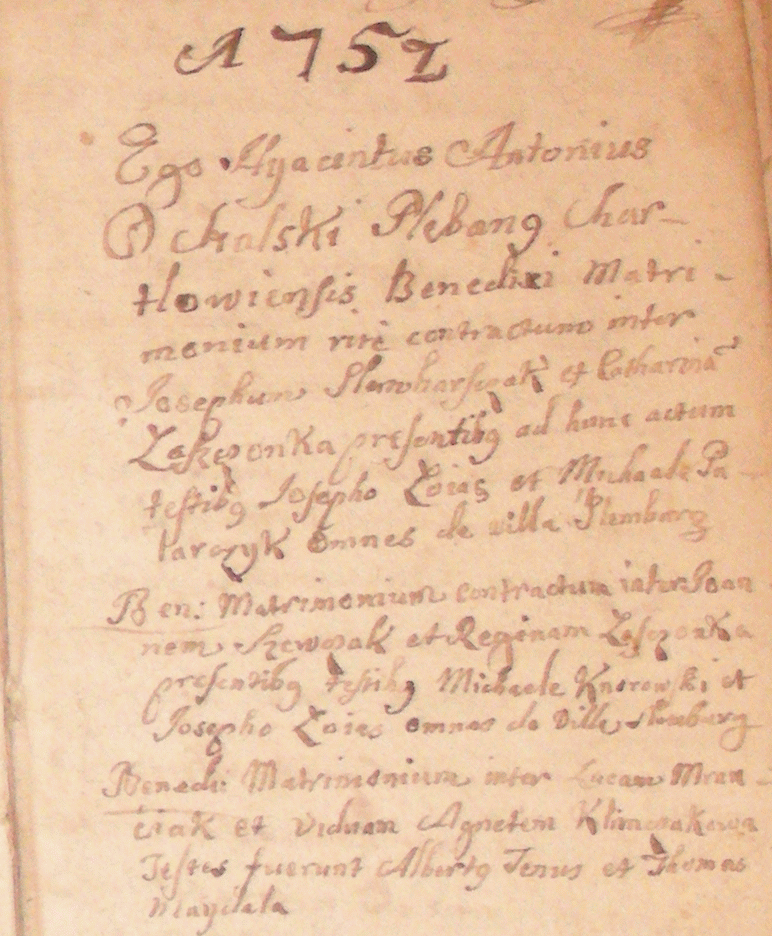 A 752
Ego Hyacintus Antonius
Plebang Char-
tlowiensis Benedixi Matri-
monium rité contractum inter
Josephum et Catharinā
presentibg ad hunc actum
testibg Josepho Zoias et Michaele Pa-
laroryk omnes de villa Plemburg
Ben: Matrimonium contractum inter Joan
nem Szewozak et Reginam
presentibg testibg Michaele Knorowski et
Josepho Zoias omnes de Villa
Benedi: Matrimonium inter Lucam Mran-
ciak et viduam Agnetem Klimczakowa
Testes fuerunt Albertg Jenus et Thomas
Maydala